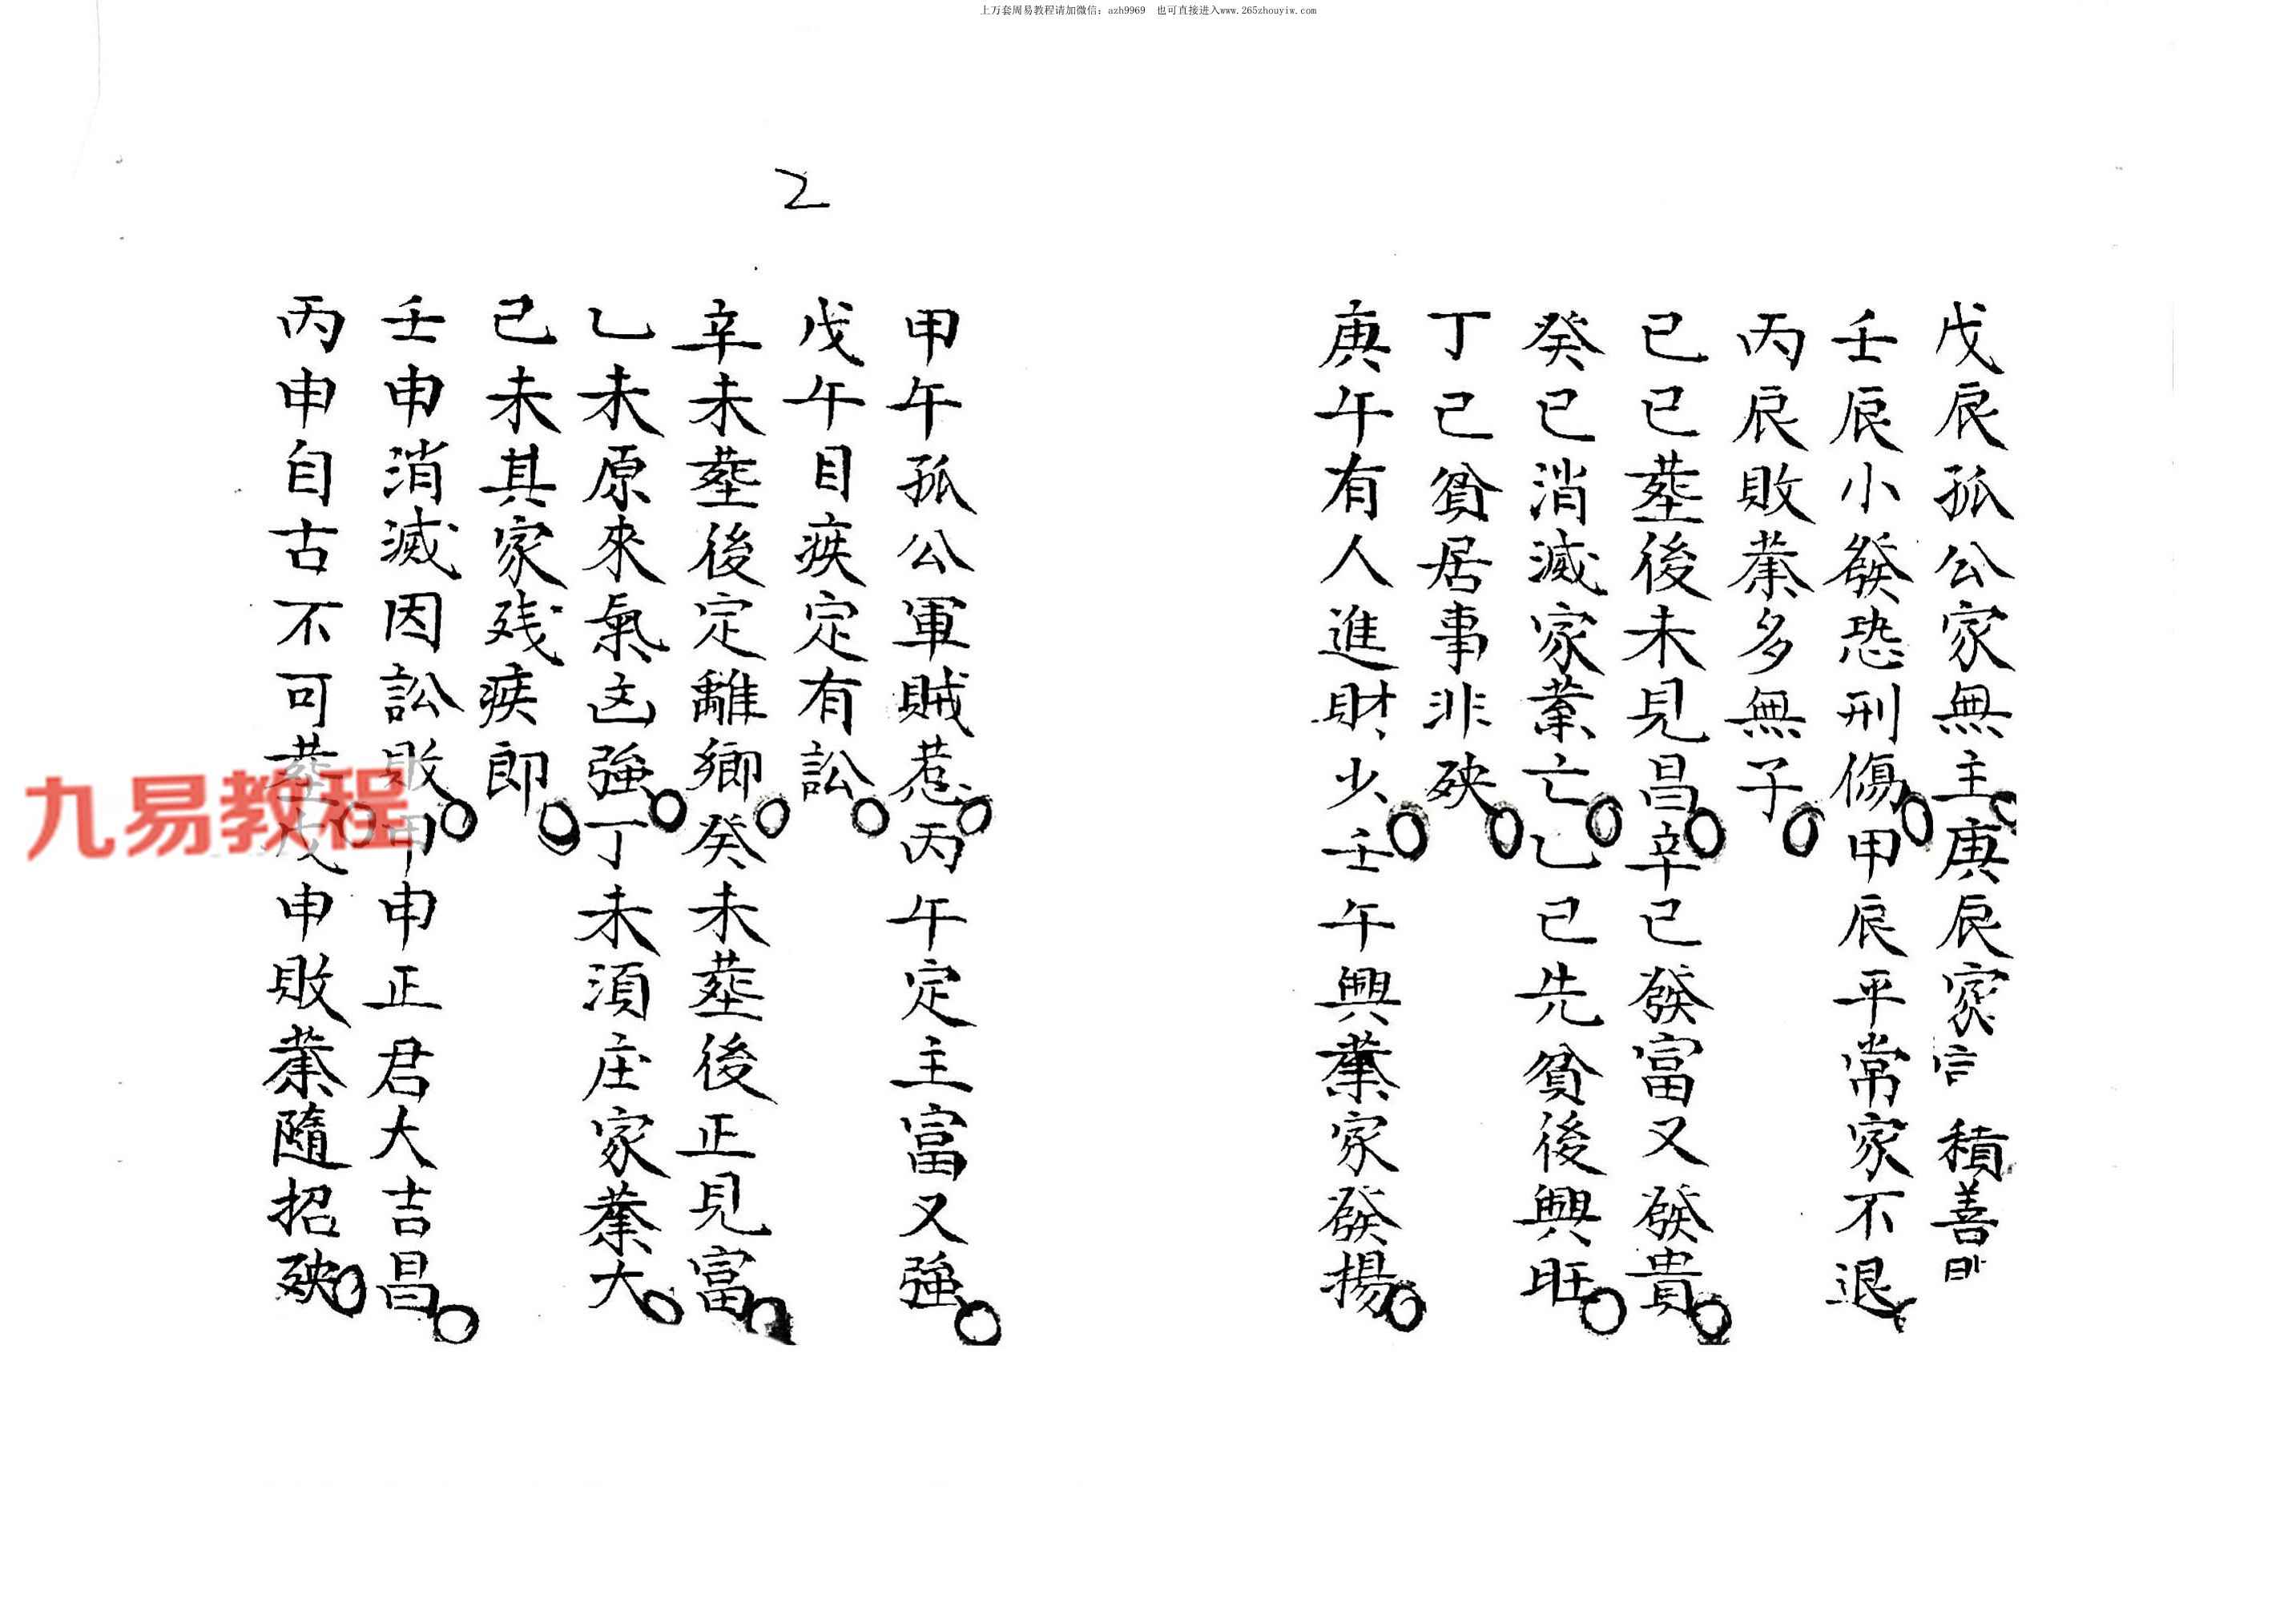 上万套周易教程请加微信：azh9969 也可直接进入www.265zhouyiw.com
戊辰孤公家無主庚辰家積善
壬辰小發恐刑傷甲辰平常家不退
丙辰敗業多無子
已已葬後未見昌辛已發富又發貴
癸已消滅家業亡乙已先貧後興旺
丁已貧居事非殃
庚午有人進財少壬午興業家發揚
2
甲午孤公軍賊惹丙午定主富又強
戊午目疾定有訟
辛未葬後定離鄉癸未葬後正見富
乙未原來氣凶強丁未須庄家業大
己未其家残疾郎
壬申消滅因訟敗甲申正君大吉昌
丙申自古不可葬戊申敗業隨招殃
九易教程